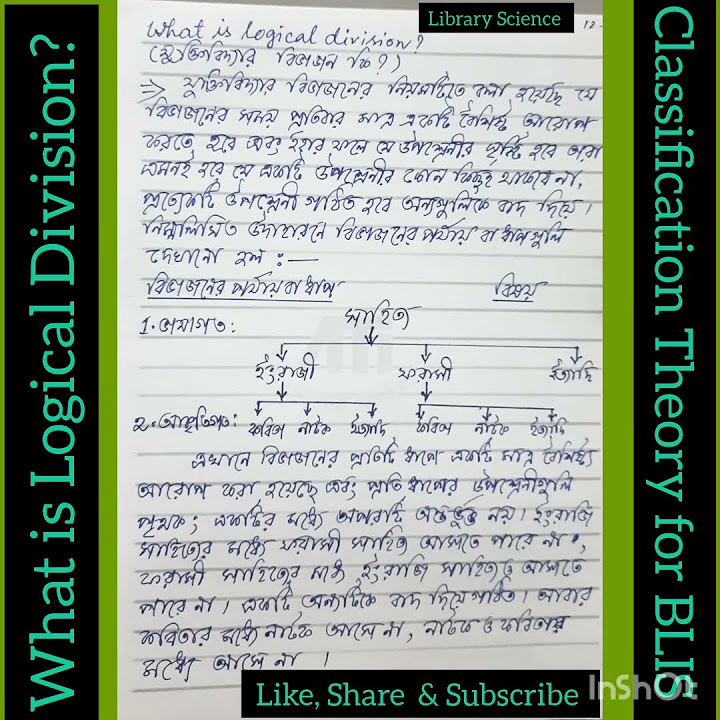 Library Science
12
What is Logical Division?
Classification Theory for BLIS
What is logical division?
(যুক্তিবিদ্যার বিভাজন কি?)
⇒ যুক্তিবিদ্যার বিভাজনের নিয়মটিতে বলা হয়েছে যে
বিভাজনের সময় প্রতিবার মাত্র একটি বৈশিষ্ট্য আরোপ
করতে হবে এবং ইহার ফলে যে উপশ্রেণীর সৃষ্টি হবে তারা
এমনই হবে যে একটি উপশ্রেণীর কোন কিছুই থাকবে না,
প্রত্যেকটি উপশ্রেণী গঠিত হবে অন্যগুলিকে বাদ দিয়ে।
নিম্নলিখিত উদাহরনে বিভাজনের পর্যায় বা ধাপগুলি
দেখানো হল :—
বিভাজনের পর্যায় বা ধাপ বিষয়
সাহিত্য
1. ভাষাগত:
ইংরাজী ফরাসী ইত্যাদি
2. আকৃতিগত: কবিতা নাটক ইত্যাদি কবিতা নাটক ইত্যাদি
এখানে বিভাজনের প্রতিটি ধাপে একটি মাত্র বৈশিষ্ট্য
আরোপ করা হয়েছে এবং প্রতি ধাপের উপশ্রেণীগুলি
পৃথক; একটির মধ্যে অপরটি অন্তর্ভুক্ত নয়। ইংরাজি
সাহিত্যের মধ্যে ফরাসী সাহিত্য আসতে পারে না,
ফরাসী সাহিত্যের মধ্যে ইংরাজি সাহিত্যও আসতে
পারে না। একটি অন্যটিকে বাদ দিয়ে গঠিত। আবার
কবিতার মধ্যে নাটক আসে না, নাটক ও কবিতার
মধ্যে আসে না।
Like, Share & Subscribe
InShOt